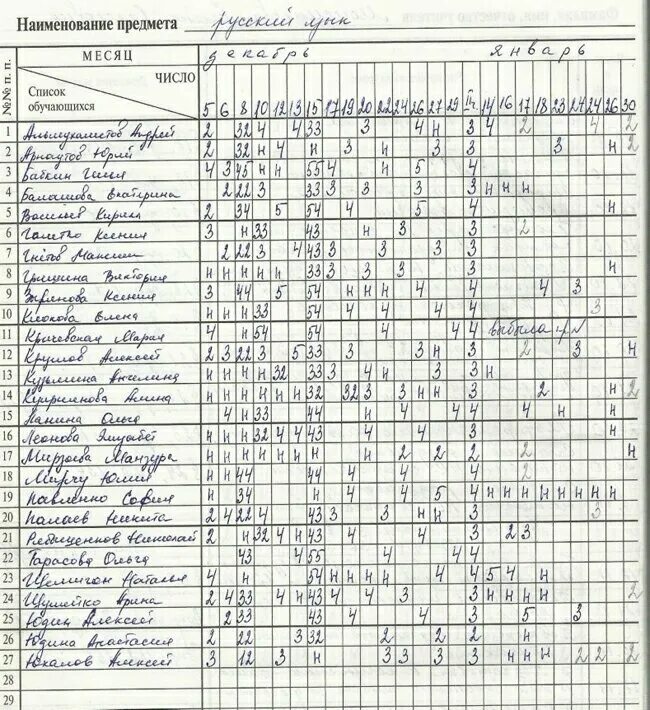 Наименование предмета русский язык
№№ п. п. МЕСЯЦ декабрь январь
Список обучающихся ЧИСЛО 5 6 8 10 12 13 15 17 19 20 22 24 26 27 29 14 16 17 18 23 24 24 26 30
1 Андрей 2 32 4 4 33 3 4 н 3 4 2 4 2
2 Арнаутов Юрий 2 32 н 4 н 3 н 3 3 3 н 2
3 Бабкин Илья 4 3 45 н н 55 4 н 5 4
4 Балашова Екатерина 2 22 3 33 3 3 3 3 4 3 н н н
5 Васильев Кирилл 2 34 5 54 4 5 4 н
6 Ксения 3 н 33 43 н 3 3 2
7 Максим 2 22 3 4 43 3 3 3 3
8 Гришина Виктория н н н н н 33 3 3 3 3 н
9 Ксения 3 44 5 54 н н н 4 4 4 3
10 Елена н н н 33 54 4 4 4 4 3
11 Кричевская Мария 4 н 54 54 4 4 4 выбыла
12 Круглов Алексей 2 3 22 3 5 33 3 3 н 3 2 3 н
13 Кузьмина Ангелина н н н н 32 33 3 4 н 3 3 н
14 Амина н н н н н н 32 32 3 3 н н 3 2 н 2
15 Ольга 4 н 33 44 н 4 4 4 4 н н
16 Леонова Элизабет н н н 32 4 4 43 4 4 3 н
17 Мирзоева Манзура н н н н н н н н 2 2 2 2 н
18 Юлия н н 44 44 4 4 4 2
19 Павленко София н 34 н 4 4 5 4 н н н н н н н н
20 Палаев Никита 2 4 22 4 43 3 3 н н 3 3
21 Николай 2 н 32 4 н 43 4 4 3 2 3
22 Тарасова Ольга 43 4 55 4 4 4
23 Наталья 4 н 54 н н н н 4 4 5 4 н
24 Шулейко Арина 2 4 33 4 н 43 4 4 3 3 н н н н 2
25 Юдин Алексей 2 33 43 4 4 3 5 3
26 Юдина Анастасия 2 22 3 32 2 2 2 н
27 Алексей 3 12 3 н 3 3 3 3 3 н н н 2 2 2
28
29